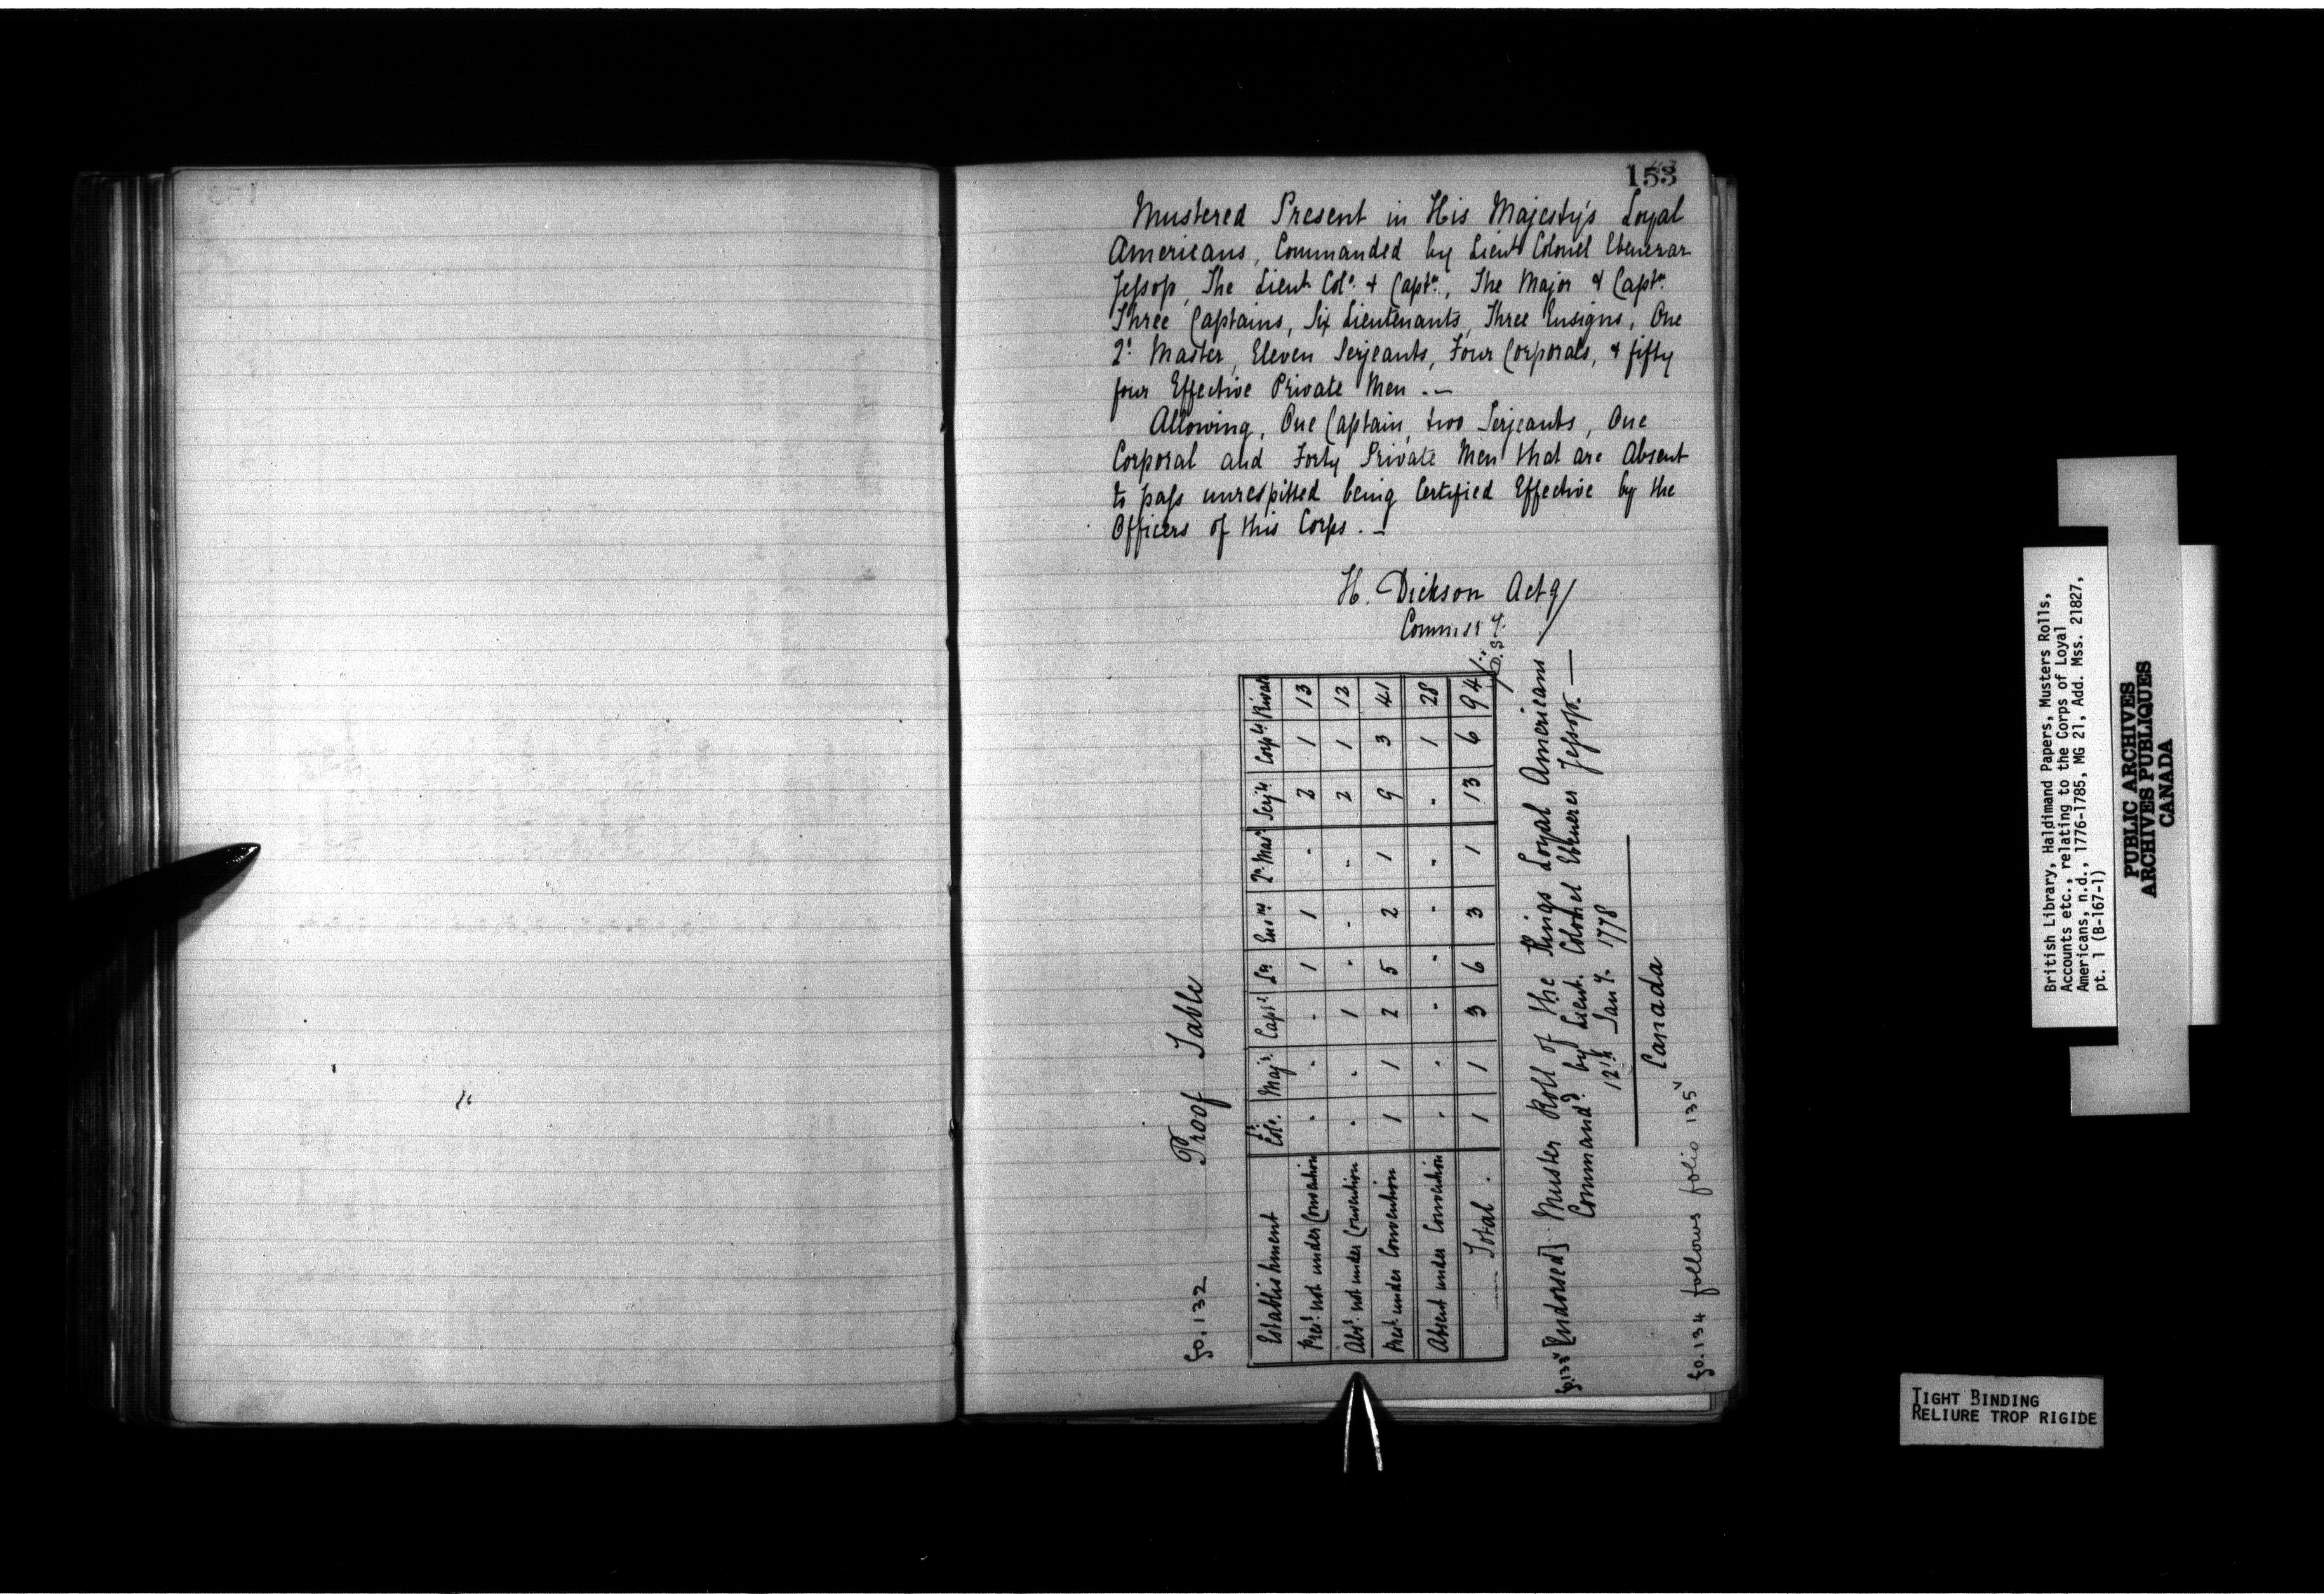 153
Mustered Present in His Majesty's Loyal
Americans, Commanded by Lieut Colonel Ebenezar
Jessop, The Lieut Col.º & Capt.n, The Major & Capt.n
Three Captains, Six Lieutenants, Three Ensigns, One
Q.r Master, Eleven Serjeants, Four Corporals, & fifty
four Effective Private Men . —
Allowing, One Captain, two Serjeants, One
Corporal and Forty Private Men that are Absent
to pass unrespitted being Certified Effective by the
Officers of this Corps . —
H. Dickson Act.g
Commiss.y
fo. 132 Proof Table
Establishment Lt Col.º Maj.r Capt.s Lts Ens.ns Q.r Mas.r Serj.ts Corp.ls Privats
Pres.t not under Convention . . - 1 1 - 2 1 13
Abs.t not under Convention . . 1 . . . 2 1 12
Pres.t under Convention 1 1 2 5 2 1 9 3 41
Absent under Convention . . . . . . . 1 28
Total . 1 1 3 6 3 1 13 6 94
[Endorsed] Muster Roll of the Kings Loyal Americans
Command.d by Lieut. Colonel Ebenezer Jessop. —
12th Jan.y. 1778
Canada
fo. 134 follows folio 135v
British Library, Haldimand Papers, Musters Rolls,
Accounts etc., relating to the Corps of Loyal
Americans, n.d., 1776-1785, MG 21, Add. Mss. 21827,
pt. 1 (B-167-1)
PUBLIC ARCHIVES
ARCHIVES PUBLIQUES
CANADA
TIGHT BINDING
RELIURE TROP RIGIDE